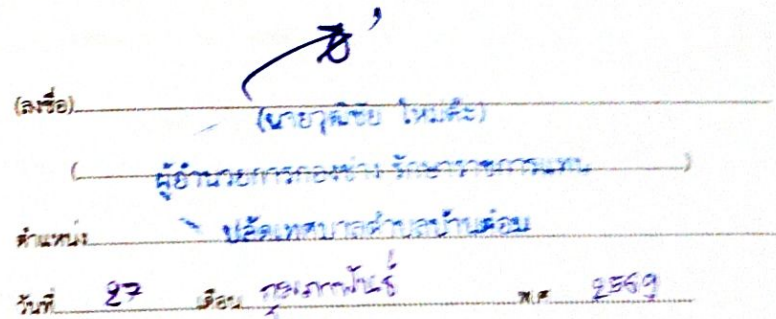 (ลงชื่อ)
(นายวุฒิชัย ใหม่ต๊ะ)
(ผู้อำนวยการกองช่าง รักษาราชการแทน)
ตำแหน่ง ปลัดเทศบาลตำบลบ้านต๋อม
วันที่ 27 เดือน กุมภาพันธ์ พ.ศ. 2569